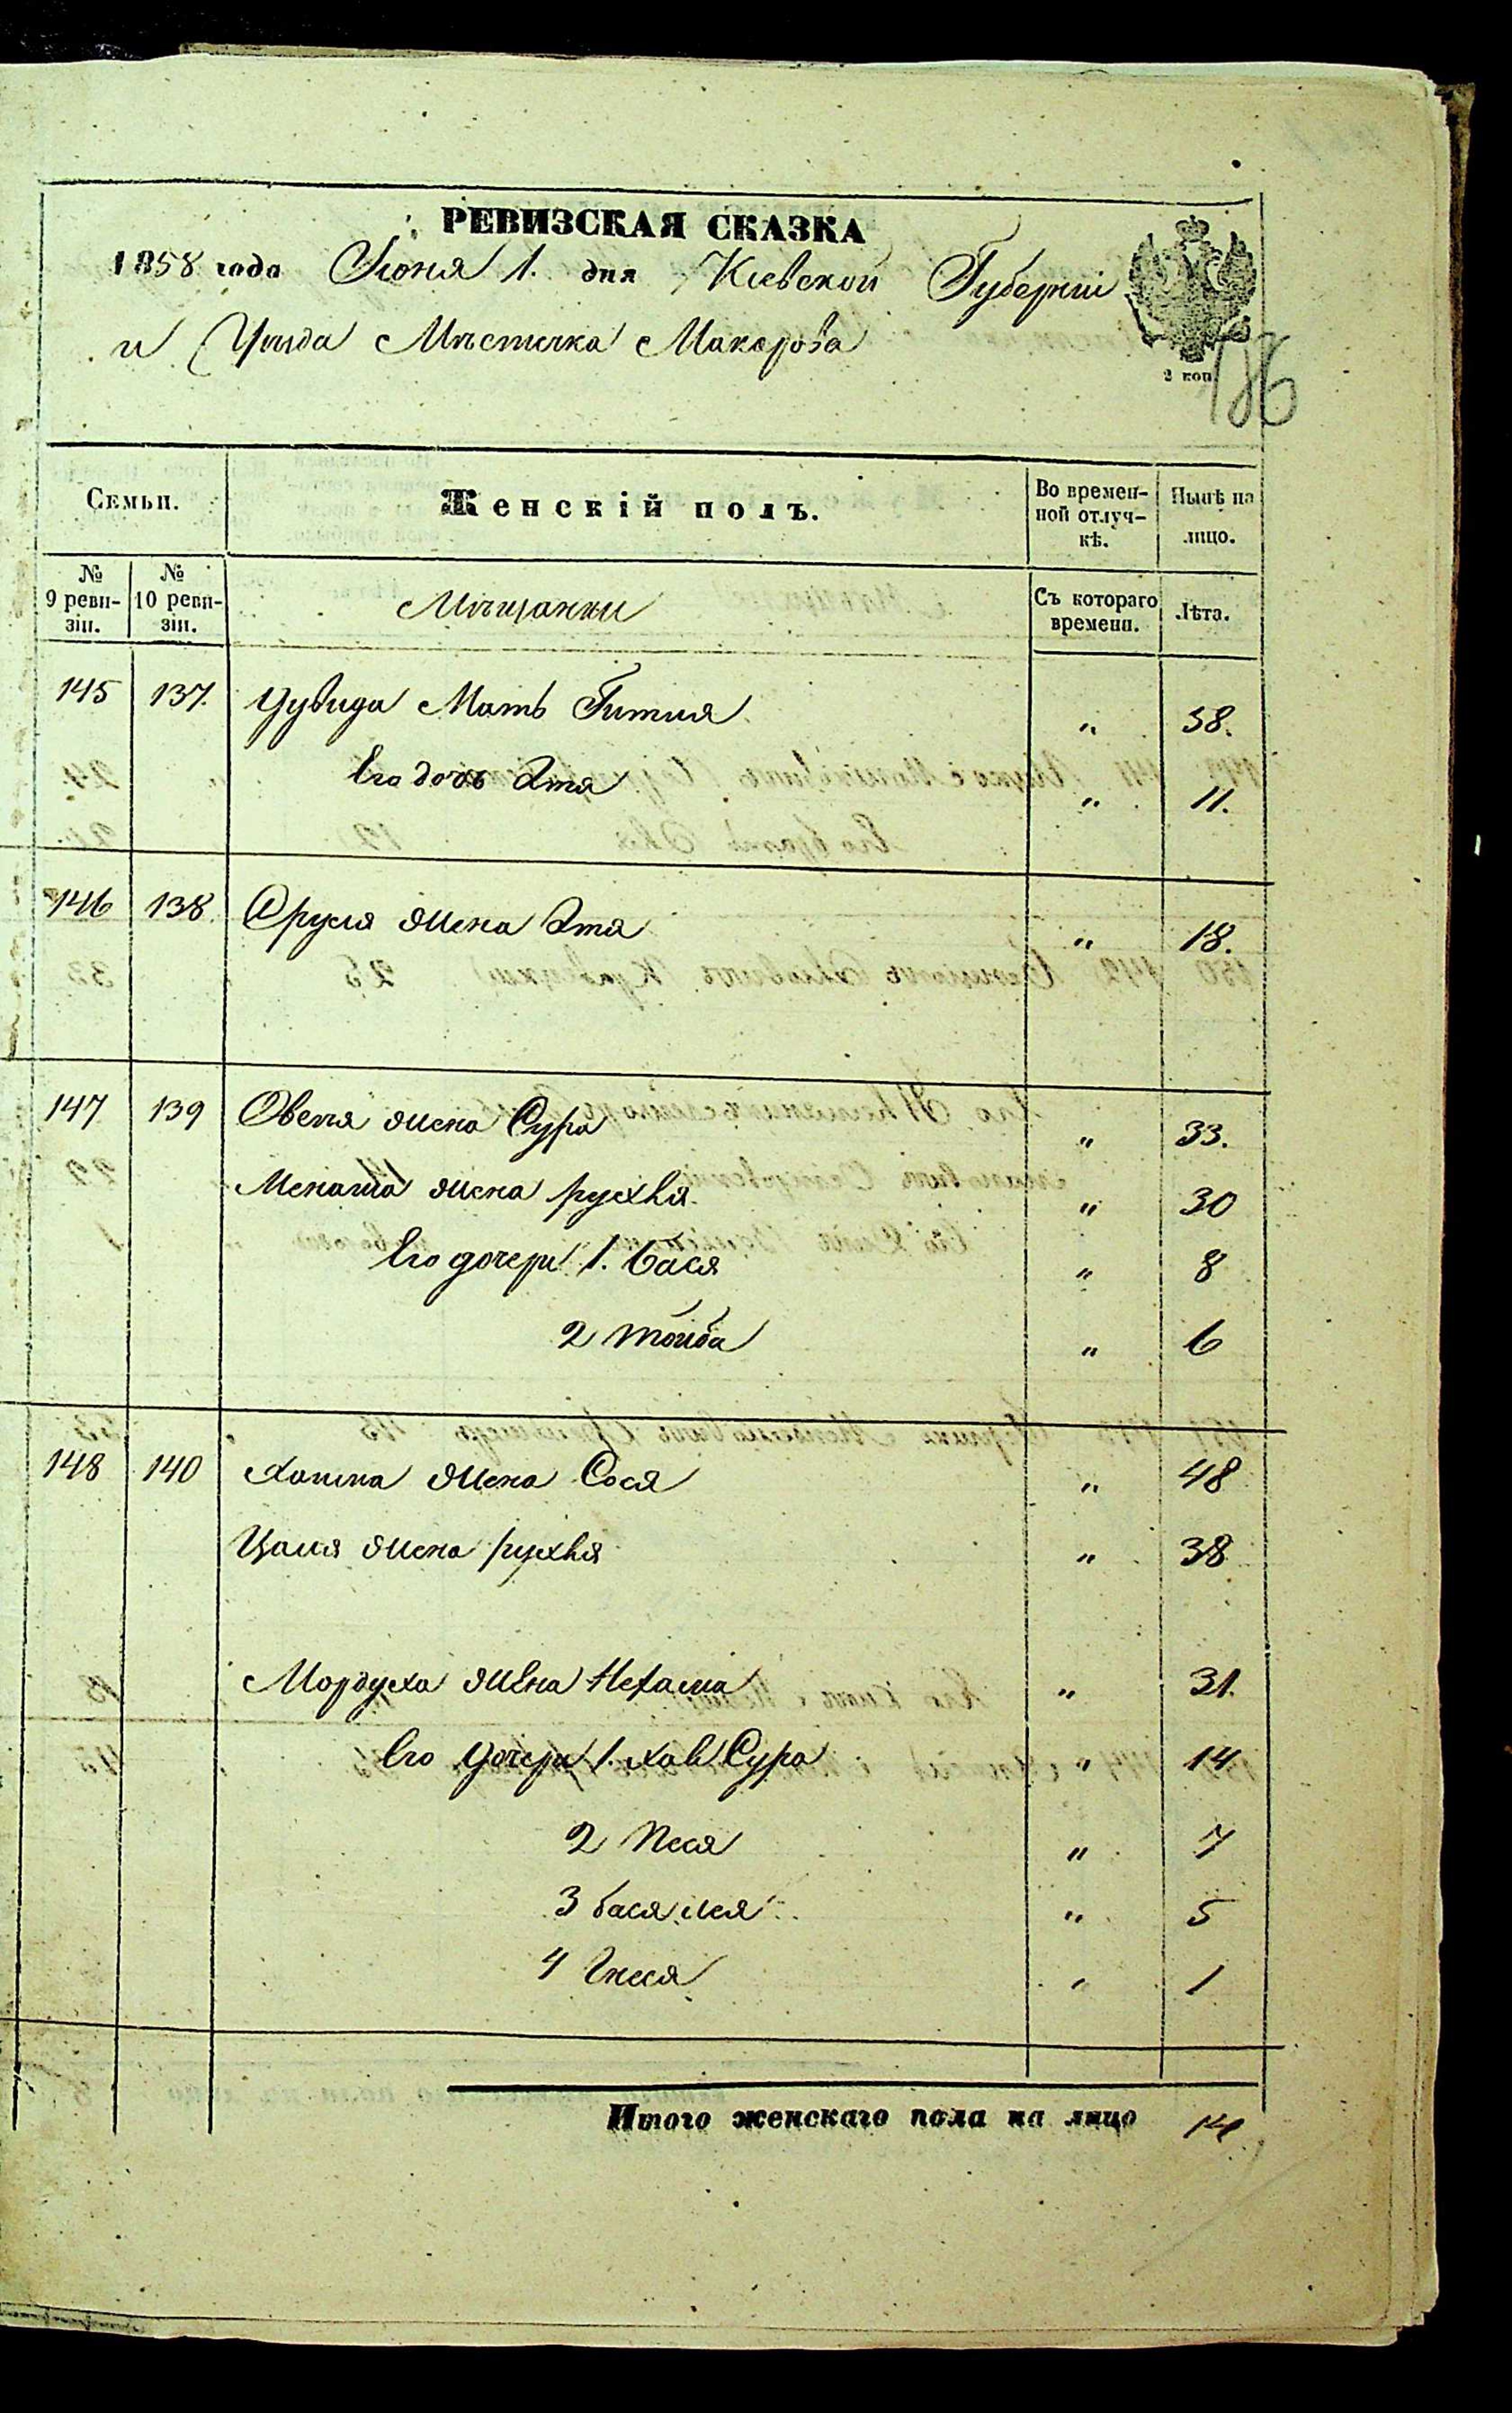 РЕВИЗСКАЯ СКАЗКА
1858 года Июня 1. дня Кіевской Губерніи
и Уѣзда Мѣстечка Макарова
2 коп.
136
Семьи. Женскій полъ. Во времен- Нынѣ на
ной отлуч- лицо.
кѣ.
№ № Мѣщанки Съ котораго Лѣта.
9 реви- 10 реви- времени.
зіи. зіи.
145 137. Мать Гитля " 58.
Его дочьЭтя " 11.
146 138. Сруля жена Этя " 18.
147 139 Овсѣя жена Сура " 33.
Менаша жена рухля " 30
Его дочери 1. Бася " 8
2 Тойба " 6
148 140 жена Сося " 48
жена рухля " 38
Мордуха жена Нехама " 31.
Его дочери 1. Хая Сура " 14
2 Песя " 7
3 бася лея " 5
4 " 1
Итого женскаго пола на лицо 14